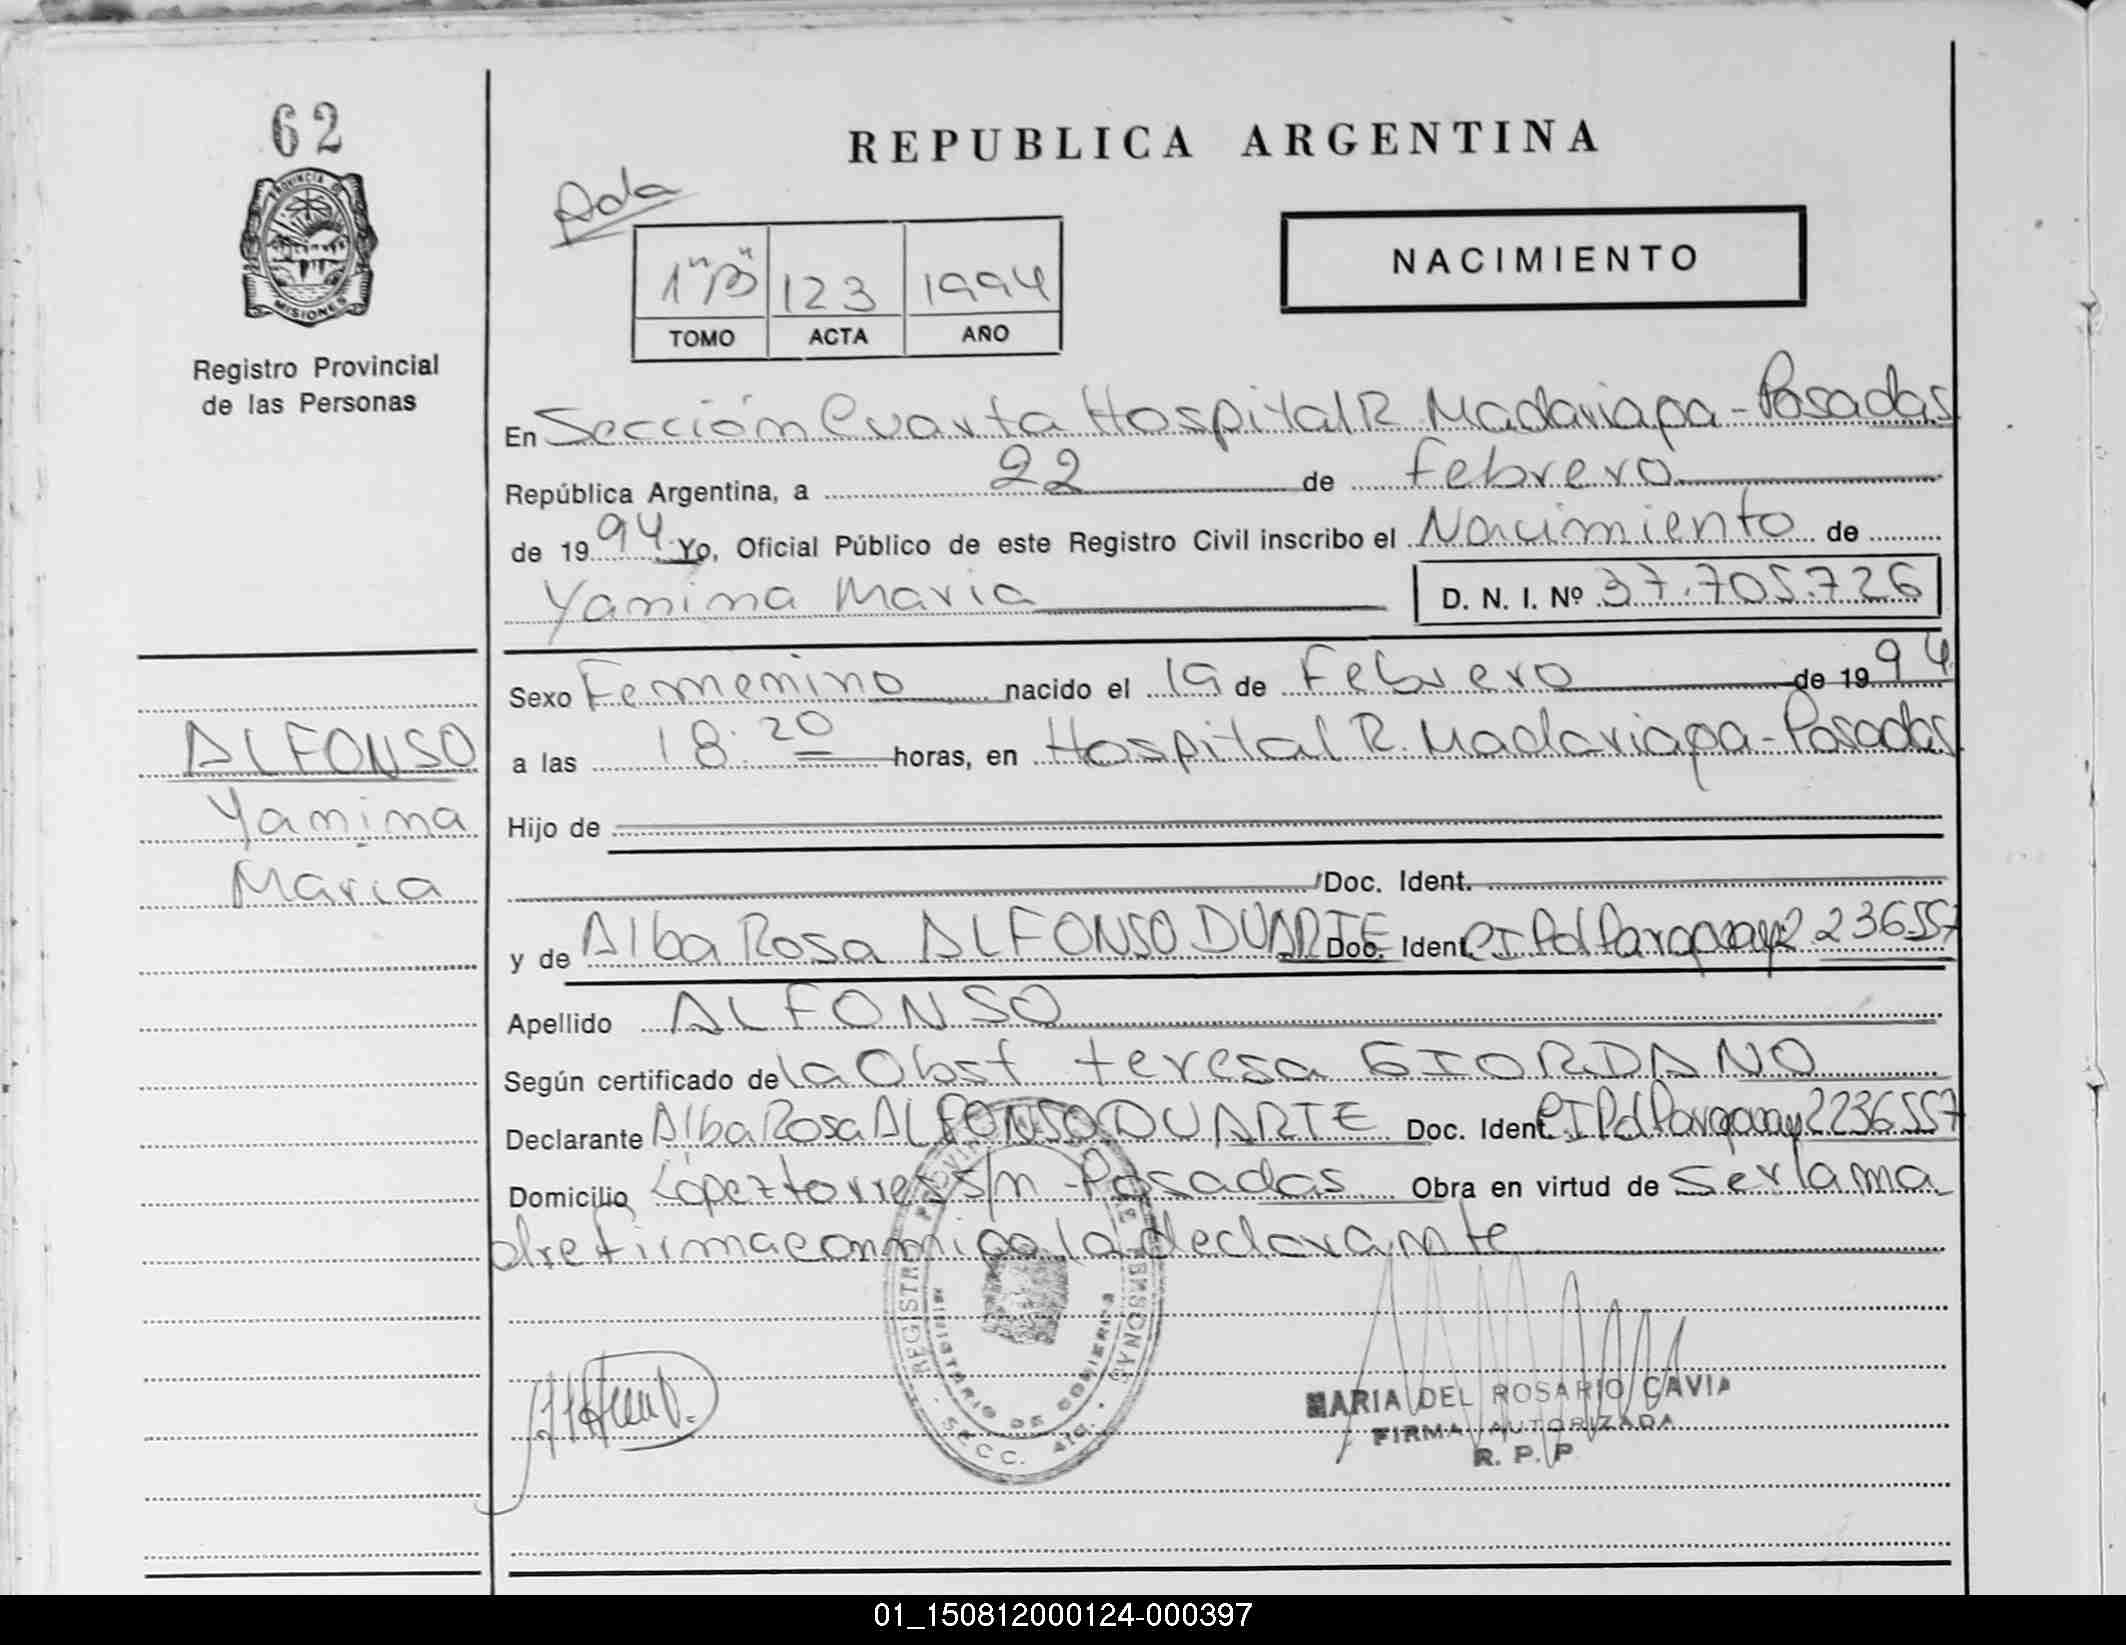 62
PROVINCIA DE
MISIONES
Registro Provincial
de las Personas
ALFONSO
Yanina
Maria
REPUBLICA ARGENTINA
Ada
1"B" 123 1994
TOMO ACTA AÑO
NACIMIENTO
En Sección Cuarta Hospital R. Madariaga - Posadas
República Argentina, a 22 de Febrero
de 1994 Yo, Oficial Público de este Registro Civil inscribo el Nacimiento de
Yanina Maria D. N. I. Nº 37.705.726
Sexo Femenino nacido el 19 de Febrero de 1994
a las 18:20 horas, en Hospital R. Madariaga - Posadas
Hijo de
Doc. Ident.
y de Alba Rosa ALFONSO DUARTE Doc. Ident. CI Pol Paraguay 2236557
Apellido ALFONSO
Según certificado de la Obst teresa GIORDANO
Declarante Alba Rosa ALFONSO DUARTE Doc. Ident. CI Pol Paraguay 2236557
Domicilio López torres s/n - Posadas Obra en virtud de ser la ma
dre firma conmigo la declarante
REGISTRO PROVINCIAL DE LAS PERSONAS
MINISTERIO DE GOBIERNO
SECC. 4ta.
MARIA DEL ROSARIO CAVIA
FIRMA AUTORIZADA
R. P. P
01_150812000124-000397